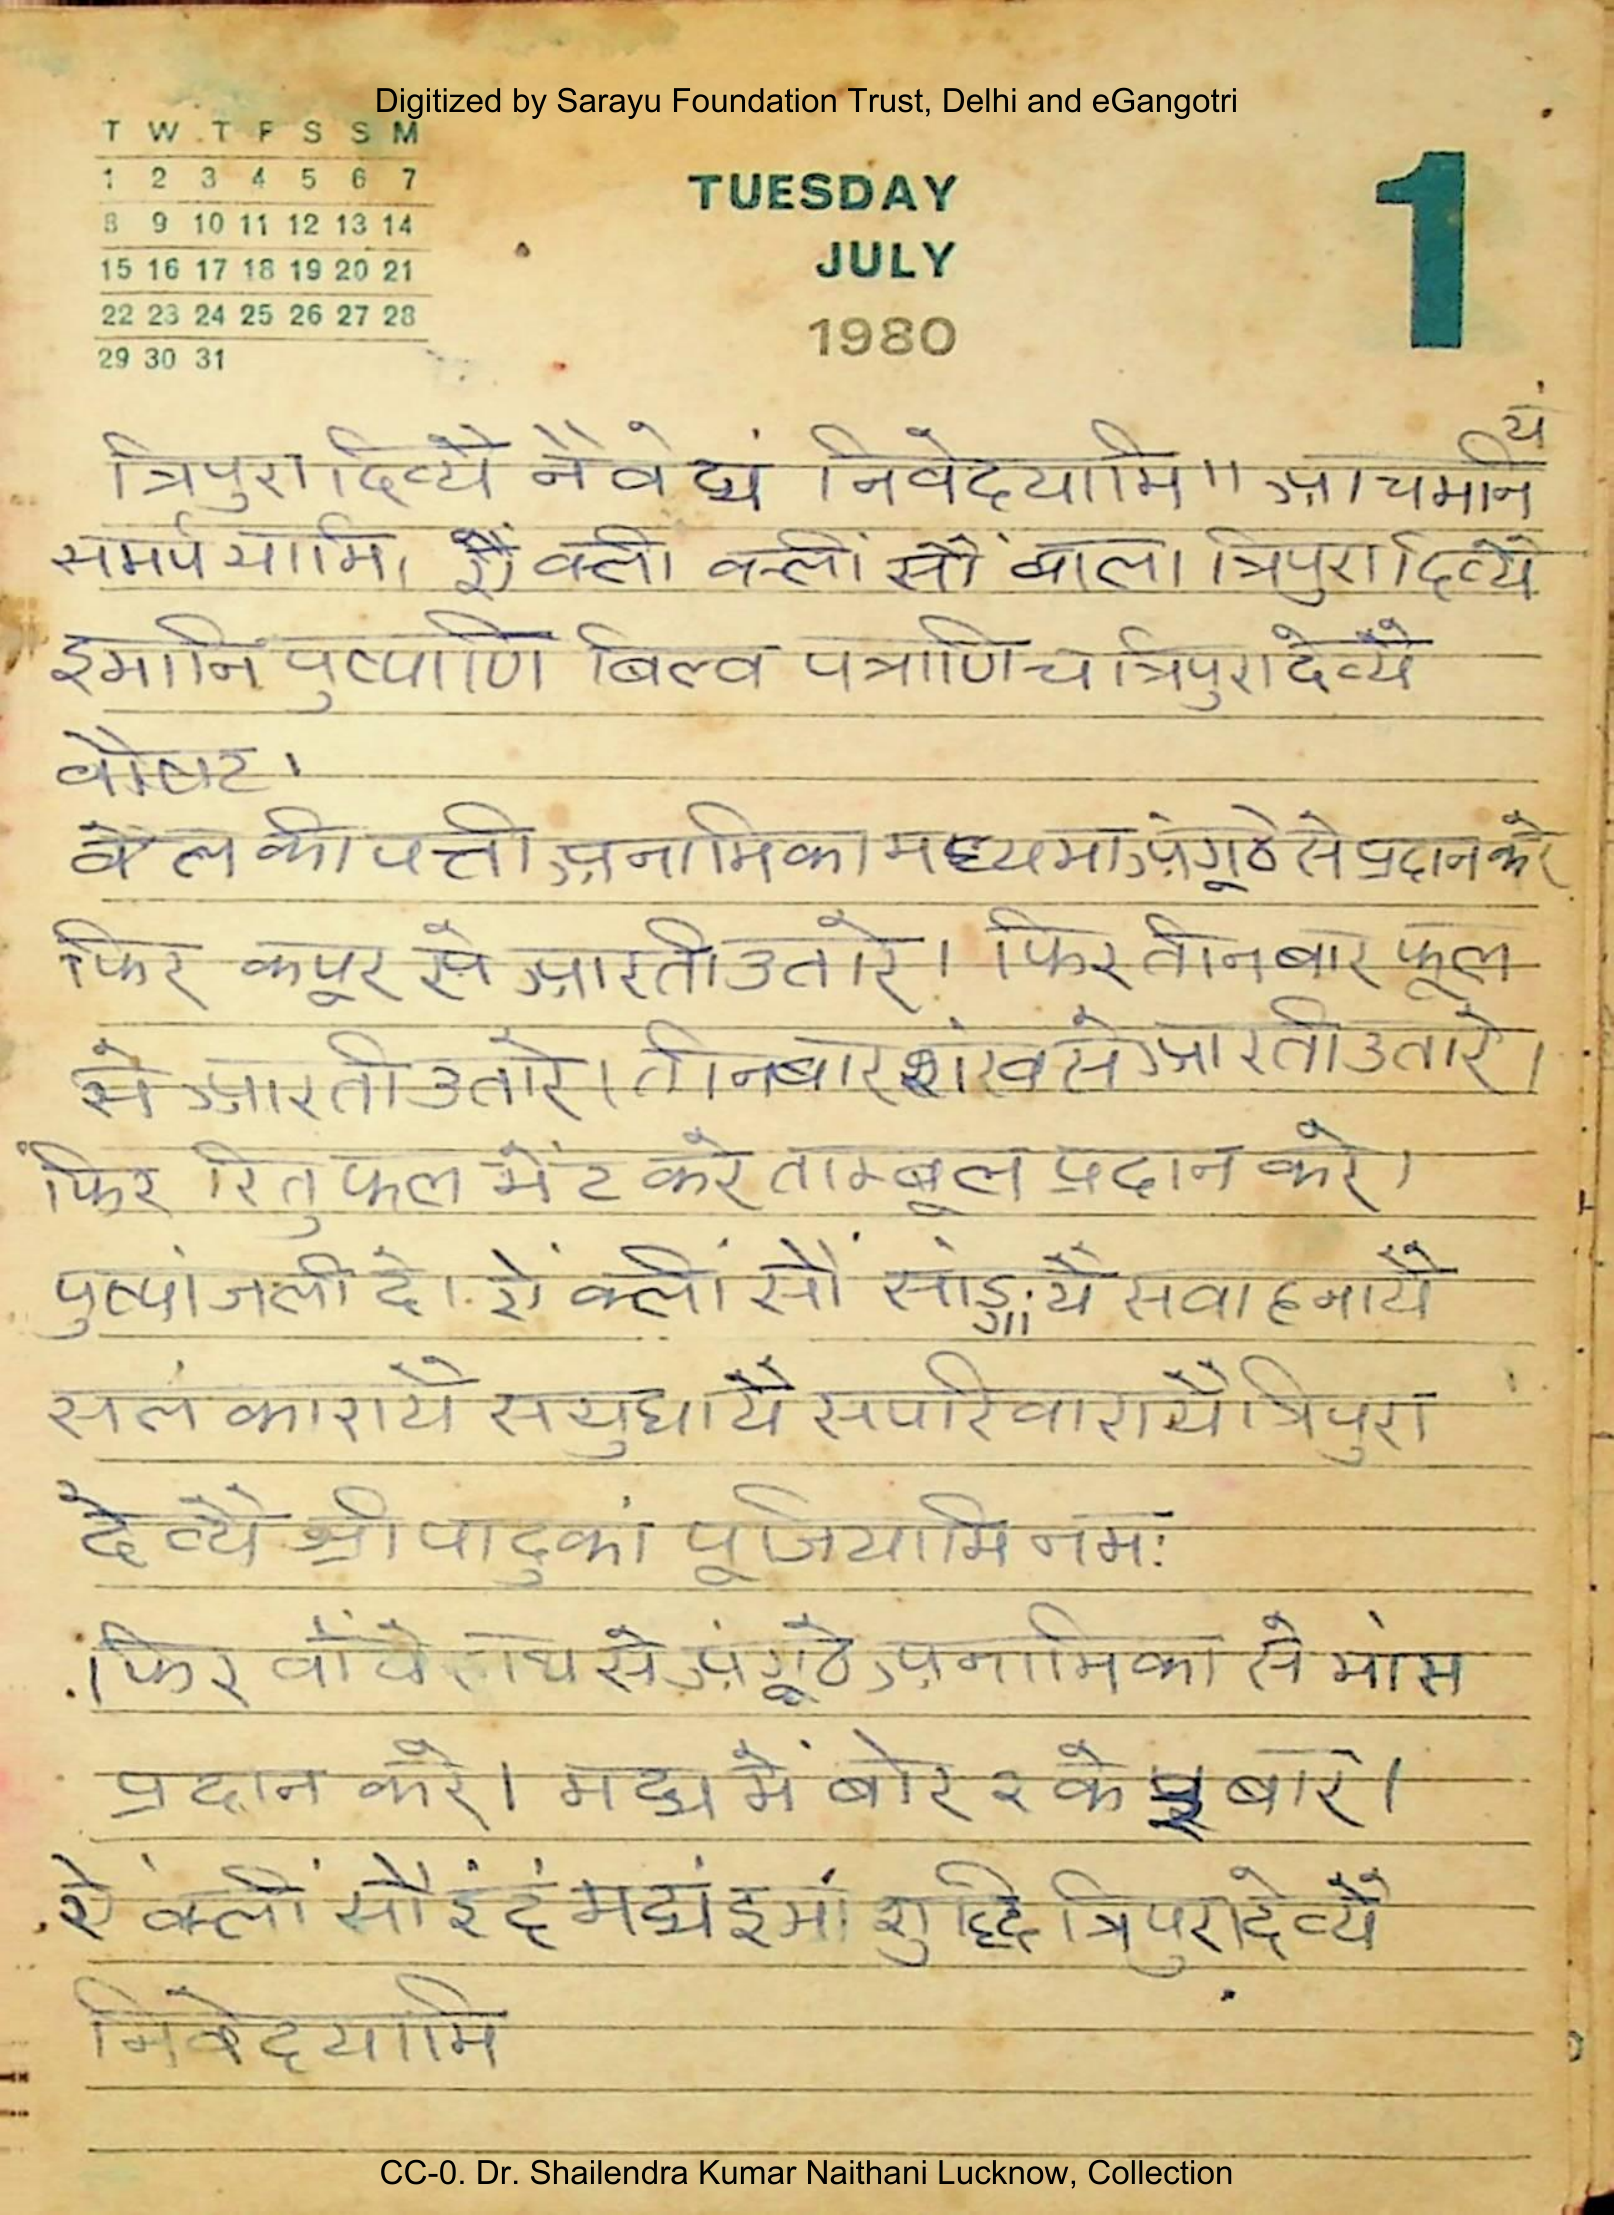 Digitized by Sarayu Foundation Trust, Delhi and eGangotri
T W T F S S M
1 2 3 4 5 6 7
8 9 10 11 12 13 14
15 16 17 18 19 20 21
22 23 24 25 26 27 28
29 30 31
TUESDAY
JULY
1980
1
यं
त्रिपुरादिव्यै नैवेद्यं निवेदयामि॥ आचमनि
समर्पयामि। ऐं क्ली क्लीं सौं बाला त्रिपुरादिव्यै
इमानि पुष्पाणि बिल्व पत्राणि च त्रिपुरादेव्यै
वौषट।
वेल की पत्ती अनामिका मध्यमा अंगूठे से प्रदान करे
फिर कपूर से आरती उतारे। फिर तीन बार फूल
से आरती उतारे। तीन बार शंख से आरती उतारे।
फिर रितु फल भेंट करे ताम्बूल प्रदान करे।
पुष्पांजली दे। ऐं क्लीं सौं सांङ्गायै सवाहनायै
सलंकारायै सयुधायै सपरिवारायै त्रिपुरा
देव्यै श्री पादुकां पूजियामि नमः
फिर वांये हाथ से अंगूठे अनामिका से मांस
प्रदान करे। मद्य में बोर २ के बार।
ऐं क्लीं सौं इदं मद्यं इमां शुद्धि त्रिपुरादेव्यै
निवेदयामि
CC-0. Dr. Shailendra Kumar Naithani Lucknow, Collection